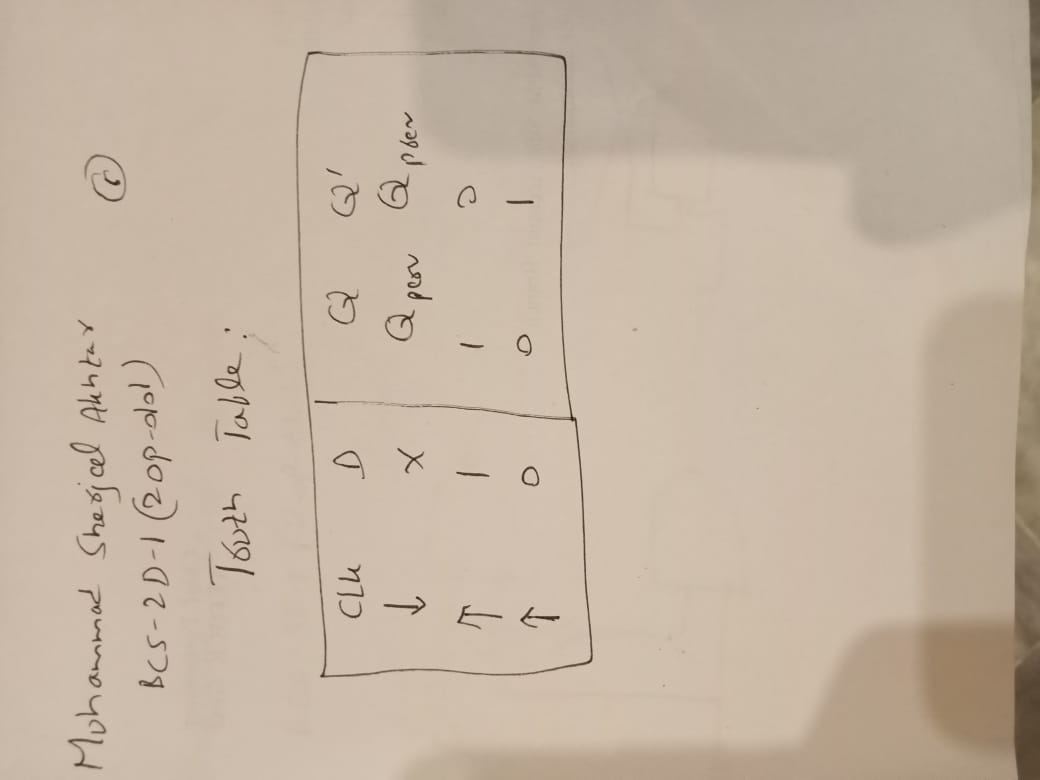 Mohammad Sherjeel Akhtar
BCS-2D-1 (20p-0101)
Truth Table:
CLK D Q Q'
↓ X Q prev Q prev
↑ 1 1 0
↑ 0 0 1